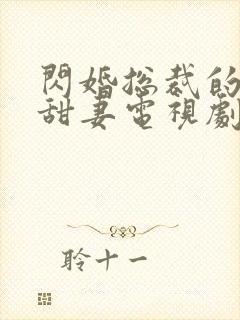 閃婚總裁的
甜妻電視劇
聆十一